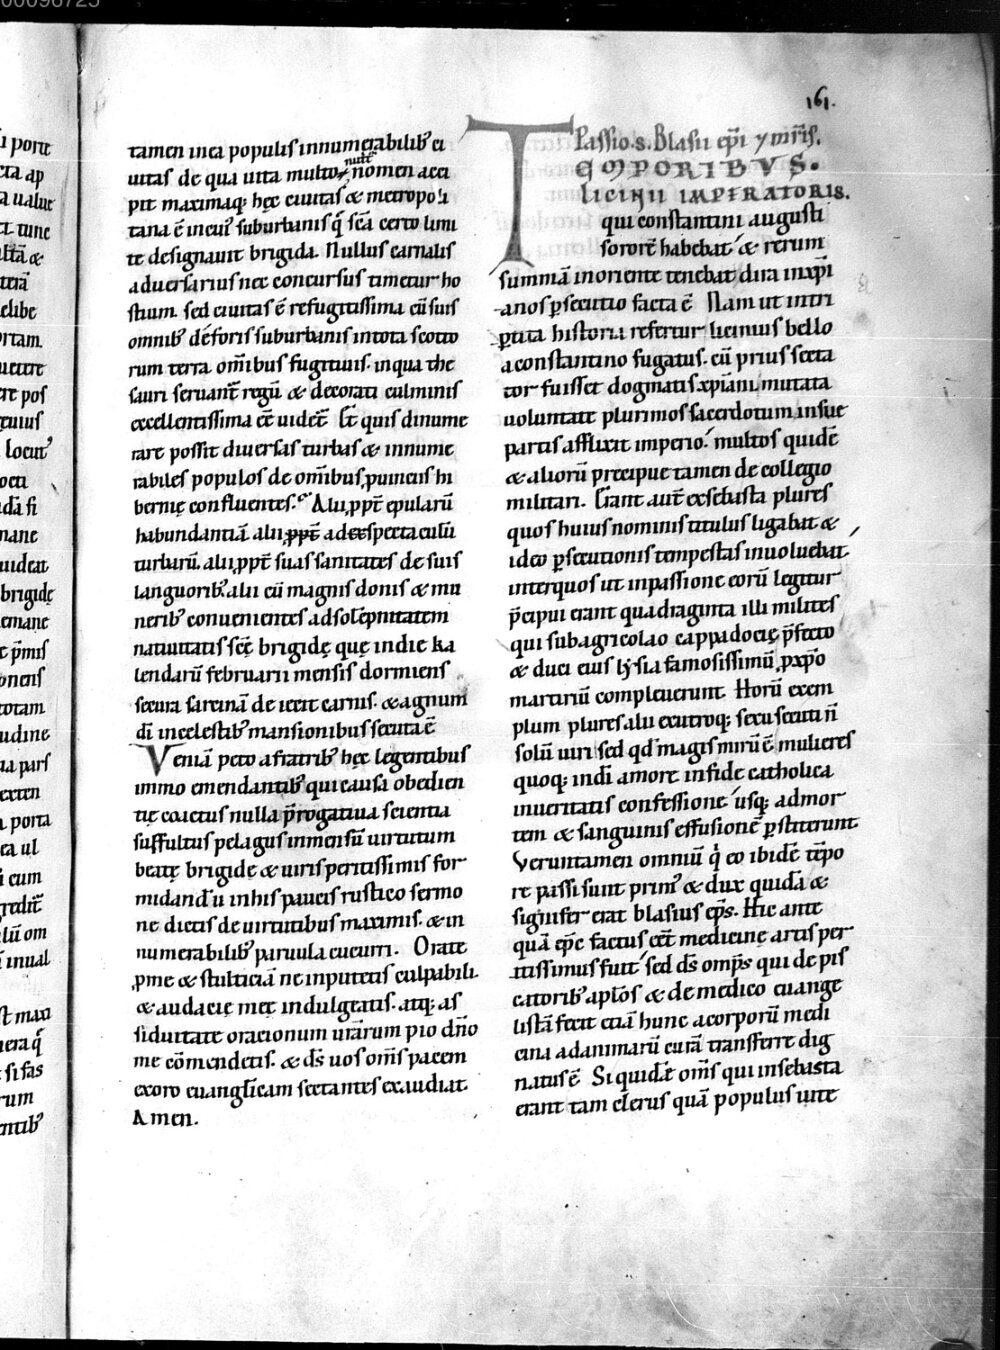 00098725
161.
tamen in ea populis innumerabilib; ci
uitas de qua uita multor̄ nomen acci
pit maximaq; hęc ciuitas & metropoli
tana ē in cui' suburbanis q̄ sc̄a certo limi
te designauit brigida. Nullus carnalis
aduersarius nec concursus timetur ho
stium. sed ciuitas ē refugitissima cū suis
omnib; deforis suburbanis in tota scotto
rum terra om̄ibus fugitiuis. in qua the
sauri seruant̄ regū & decorati culminis
excellentissima eē uident̄. Et quis dinume
rare possit diuersas turbas & innume
rabiles populos de om̄ibus prouinciis hi
bernię confluentes. Alii ppt̄ epularū
habundantiā alii ppt̄ ad spectaculū
turbarū. alii ppt̄ suas sanitates de suis
languorib; alii cū magnis donis & mu
nerib; conuenientes ad solēpnitatem
natiuitatis sc̄ę brigidę que in die ka
lendarū februarii mensis dormiens
secura sarcinā deiecit carnis. & agnum
di in celestib; mansionibus secuta ē
Veniā peto a fratrib; hęc legentibus
immo emendantib; qui causa obedien
tię coactus nulla p̄rogatiua scientia
suffultus pelagus inmensū uirtutum
beatę brigidę & uiris peritissimis for
midandū in his paucis rustico sermo
ne dictis de uirtutibus maximis. & in
numerabilib; paruula cucurri. Orate
p me & stulticiā ne inputetis culpabili.
& audacię meę indulgeatis. atq; as
siduitate oracionum ur̄arum pio dn̄o
me cōmendetis. & ds̄ uos om̄s pacem
exoro euangl̄icam sectantes exaudiat.
Amen.
Passio. s. Blasii ep̄i & mr̄is.
TEMPORIBVS.
LICINII IMPERATORIS.
qui constantini augusti
sororē habebat & rerum
summā in oriente tenebat dira in xp̄i
anos p̄secutio facta ē. Nam ut in tri
p̄tita historia refertur licinius bello
a constantino fugatus. cū prius secta
tor fuisset dogmatis xp̄iani mutata
uoluntate plurimos sacerdotum in sue
partis afflixit imperio. multos quidē
& aliorū precipue tamen de collegio
militari. Erant aut̄ ex sebasta plures
quos huius nominis titulus ligabat &
ideo p̄secutionis tempestas inuoluebat.
inter quos ut in passione eorū legitur
p̄cipui erant quadraginta illi milites
qui sub agricolao cappadocię p̄fecto
& duci eius lysia famosissimū p xp̄o
martiriū compleuerunt. Horū exem
plum plures alii ex utroq; sexu secuti n̄
solū uiri sed qd̄ magis mirū ē mulieres
quoq; indi amore in fide catholica
in ueritatis confessione usq; ad mor
tem & sanguinis effusionē p̄stiterunt.
Veruntamen omniū q̄ eo ibidē tēpo
re passi sunt prim' & dux quidā &
signifer erat blasius ep̄s. Hic ante
quā ep̄c factus eēt medicinę artis per
itissimus fuit sed ds̄ omp̄s qui de pis
catorib; aptōs & de medico euange
listā fecit etiā hunc a corporū medi
cina ad animarū curā transferre dig
natus ē. Siquidē om̄s qui in sebasta
erant tam clerus quā populus uite